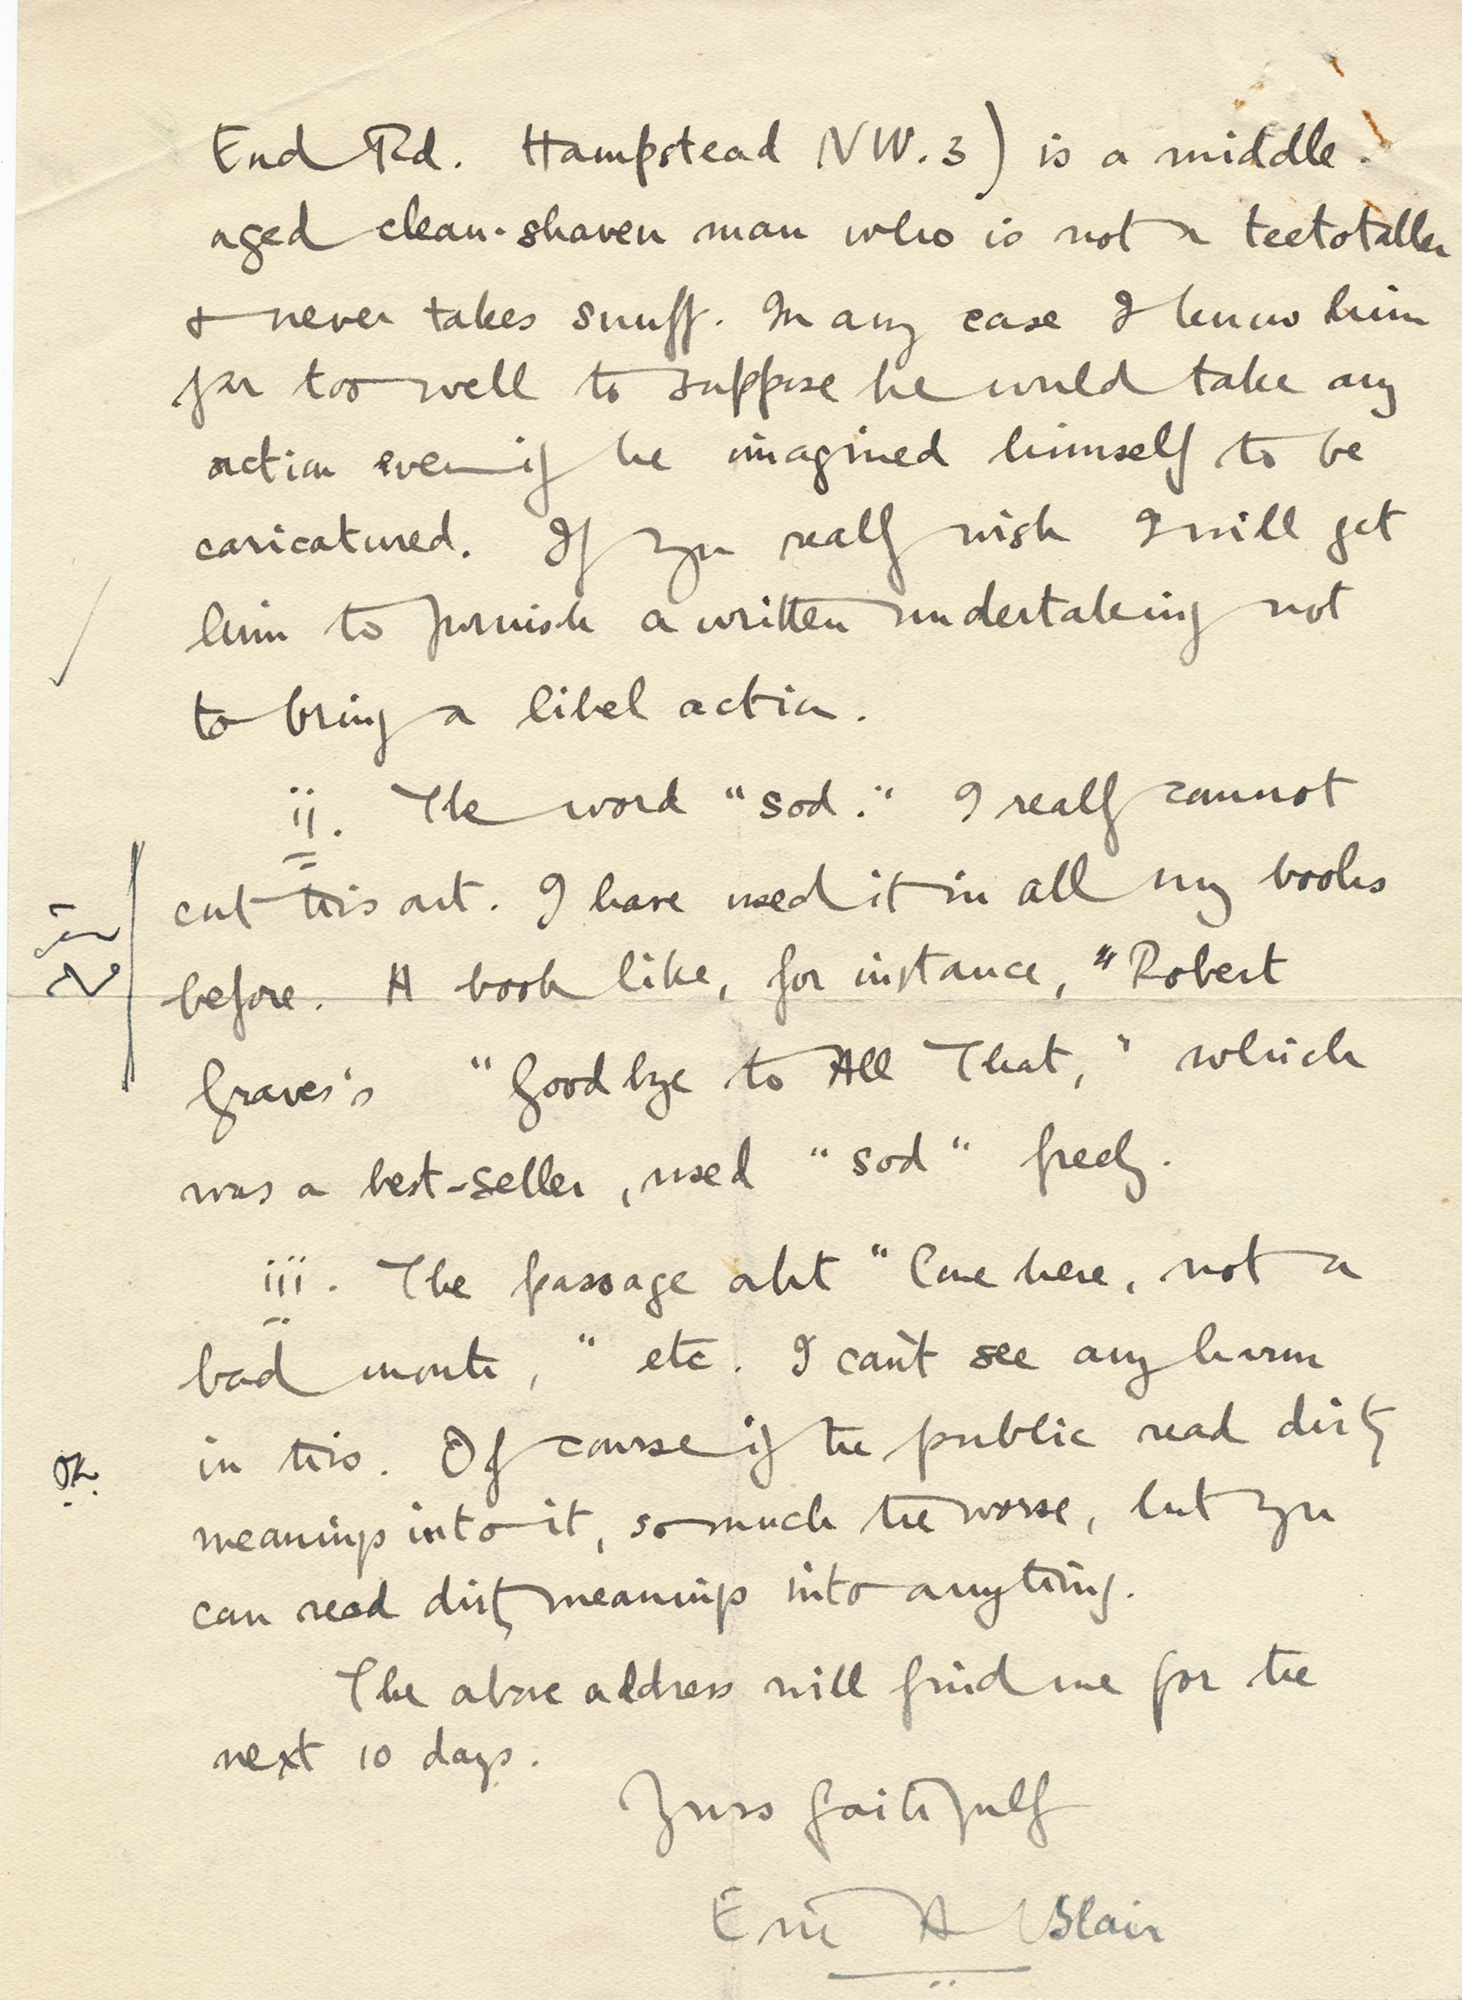 End Rd. Hampstead NW.3) is a middle-
aged clean-shaven man who is not a teetotaller
& never takes snuff. In any case I know him
far too well to suppose he would take any
action even if he imagined himself to be
caricatured. If you really wish I will get
him to furnish a written undertaking not
to bring a libel action.
ii. The word "sod." I really cannot
cut this out. I have used it in all my books
before. A book like, for instance, "Robert
Graves's "Goodbye to All That," which
was a best-seller, used "sod" freely.
iii. The passage abt "Come here, not a
bad month," etc. I can't see any harm
in this. Of course if the public read dirty
OK.
meanings into it, so much the worse, but you
can read dirty meanings into anything.
The above address will find me for the
next 10 days.
Yours faithfully
Eric A Blair